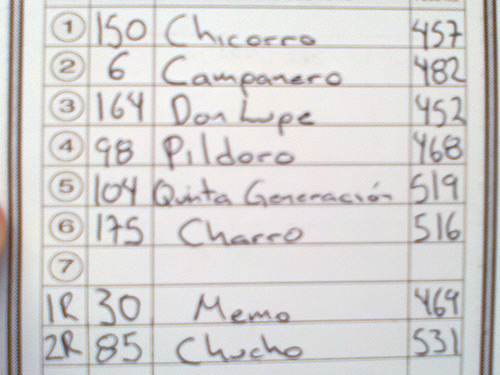 1 150 Chicorro 457
2 6 Campanero 482
3 164 Don Lupe 452
4 98 Pildoro 468
5 104 Quinta Generación 519
6 175 Charro 516
7
1R 30 Memo 469
2R 85 Chucho 531